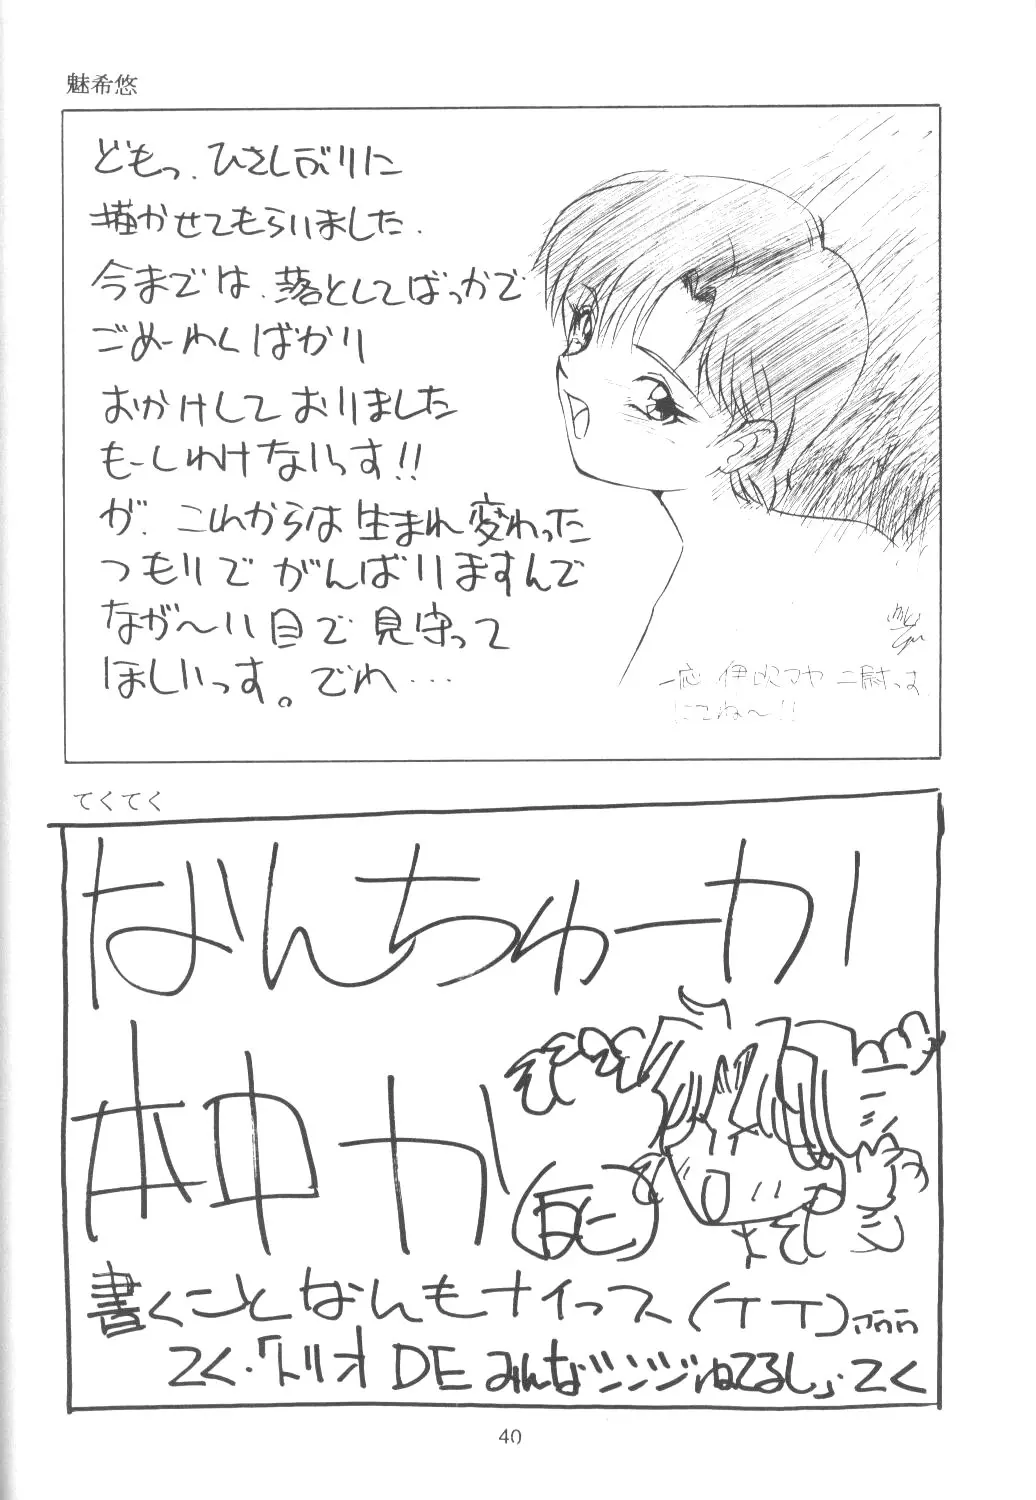 魅希悠
どもっ、ひさしぶりに
描かせてもらいました.
今までは、落としてばっかで
ごめーわくばかり
おかけしておりました
もーしわけないっす!!
が、これからは生まれ変わった
つもりでがんばりますんで
なが〜い目で見守って
ほしいっす。でわ…
一応 伊吹マヤ二尉っす
にてね〜!!
てくてく
なんちゅーか
本中か
書くことなんもナイっス(TT)
てく・「トリオDEみんなジンジンジねてるし」・てく
40